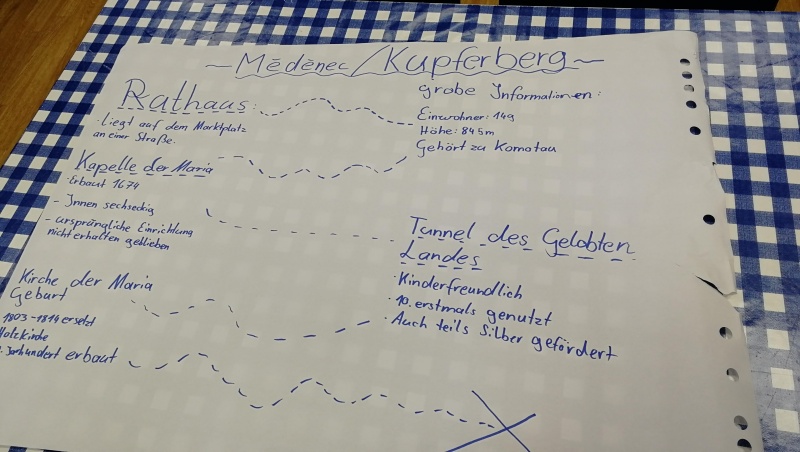 ~ Mědénec/Kupferberg ~
Rathaus:
· Liegt auf dem Marktplatz
an einer Straße.
Kapelle der Maria
· Erbaut 1674
- Innen sechseckig
- ursprüngliche Einrichtung
nicht erhalten geblieben
Kirche der Maria
Geburt
1803-1814 ersetzt
Holzkirche
Jarhundert erbaut
grobe Informationen:
Einwohner: 149
Höhe: 845m
Gehört zu Komotau
Tunnel des Gelobten
Landes
· Kinderfreundlich
· 10. erstmals genutzt
· Auch teils Silber gefördert